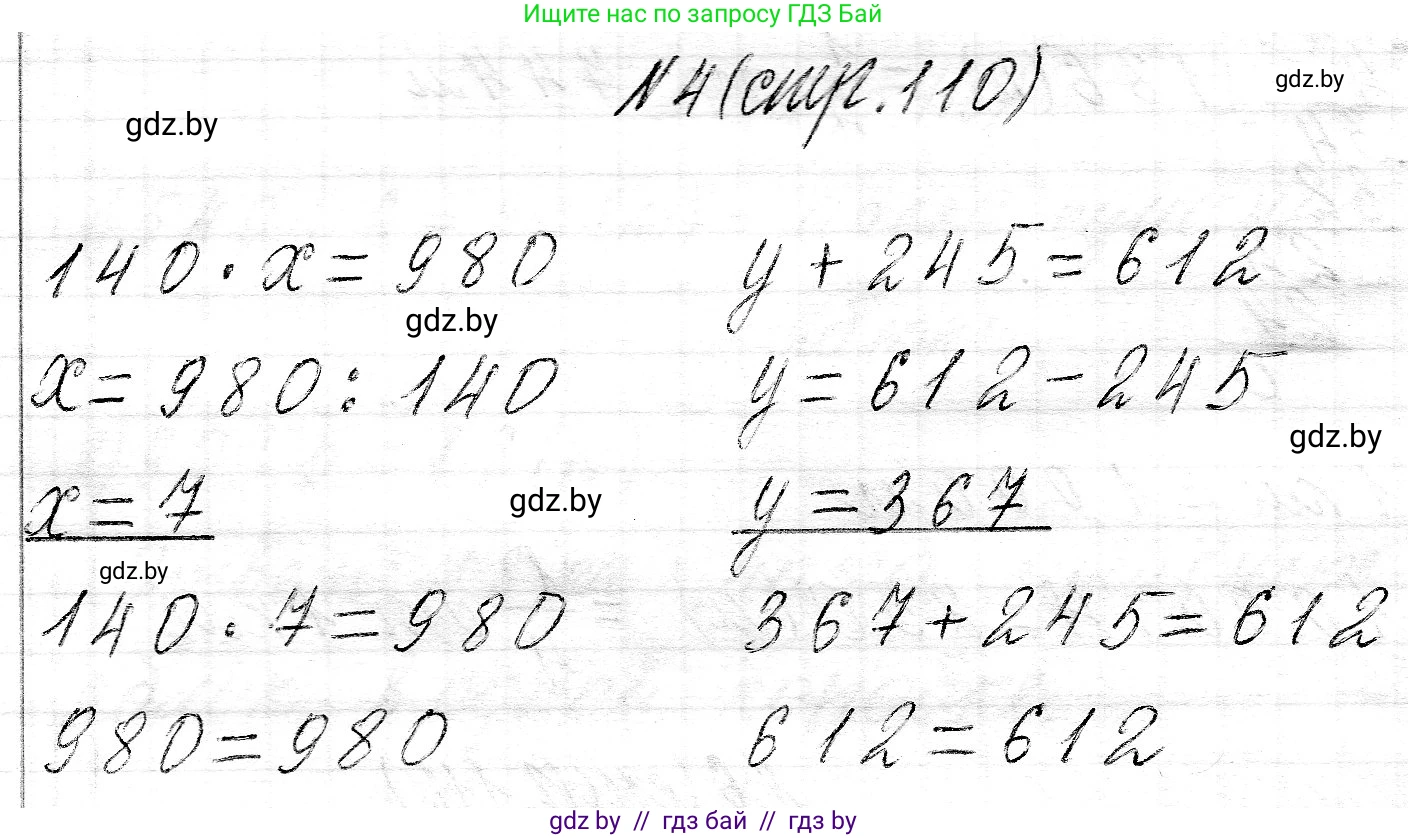 Ищите нас по запросу ГДЗ Бай
№4(стр.110)
gdz.by
gdz.by
140·x=980
y+245=612
gdz.by
x=980:140
y=612-245
gdz.by
x=7
gdz.by
y=367
gdz.by
140·7=980
367+245=612
980=980
612=612
gdz by // гдз бай // гдз by